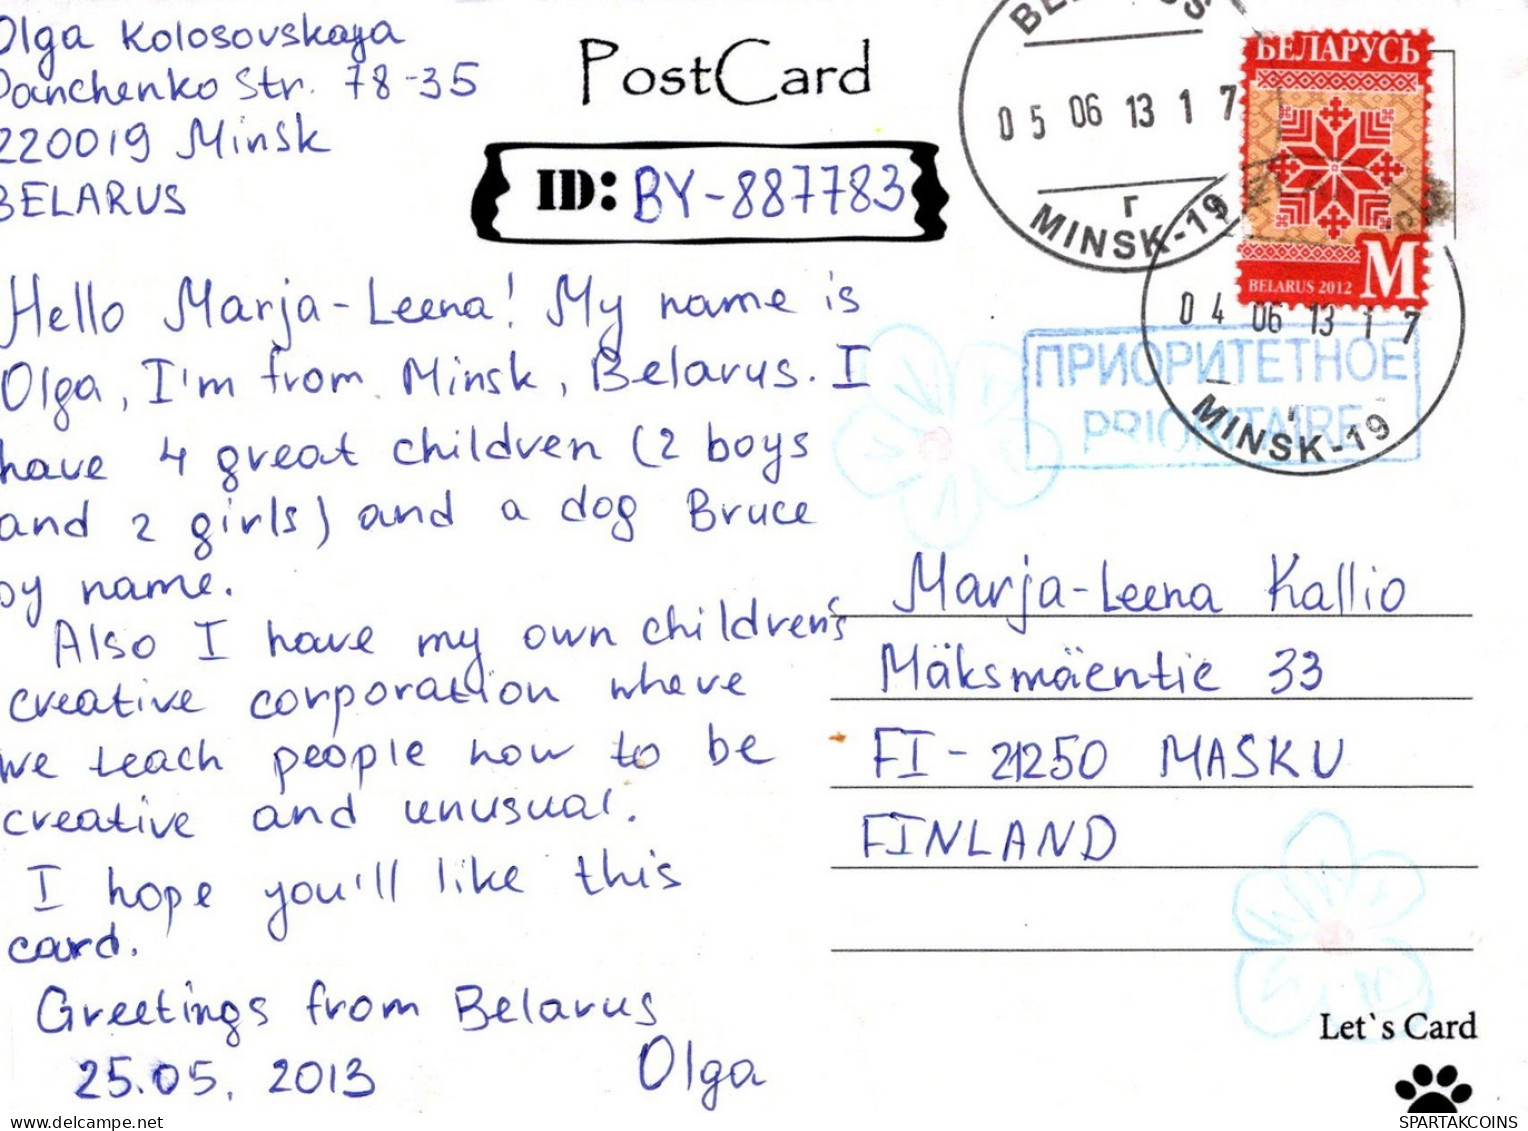 Olga Kolosovskaya
Panchenko Str. 78-35
220019 Minsk
BELARUS
PostCard
ID: BY-887783
BELARUS
05 06 13 17
г
MINSK-19
БЕЛАРУСЬ
M
BELARUS 2012
04 06 13 17
MINSK-19
ПРИОРИТЕТНОЕ
PRIORITAIRE
Hello Marja-Leena! My name is
Olga, I'm from Minsk, Belarus. I
have 4 great children (2 boys
and 2 girls) and a dog Bruce
by name.
Also I have my own children's
creative corporation where
we teach people how to be
creative and unusual.
I hope you'll like this
card.
Greetings from Belarus
25.05. 2013 Olga
Marja-Leena Kallio
Mäksmäentie 33
FI-21250 MASKU
FINLAND
Let`s Card
www.delcampe.net
SPARTAKCOINS